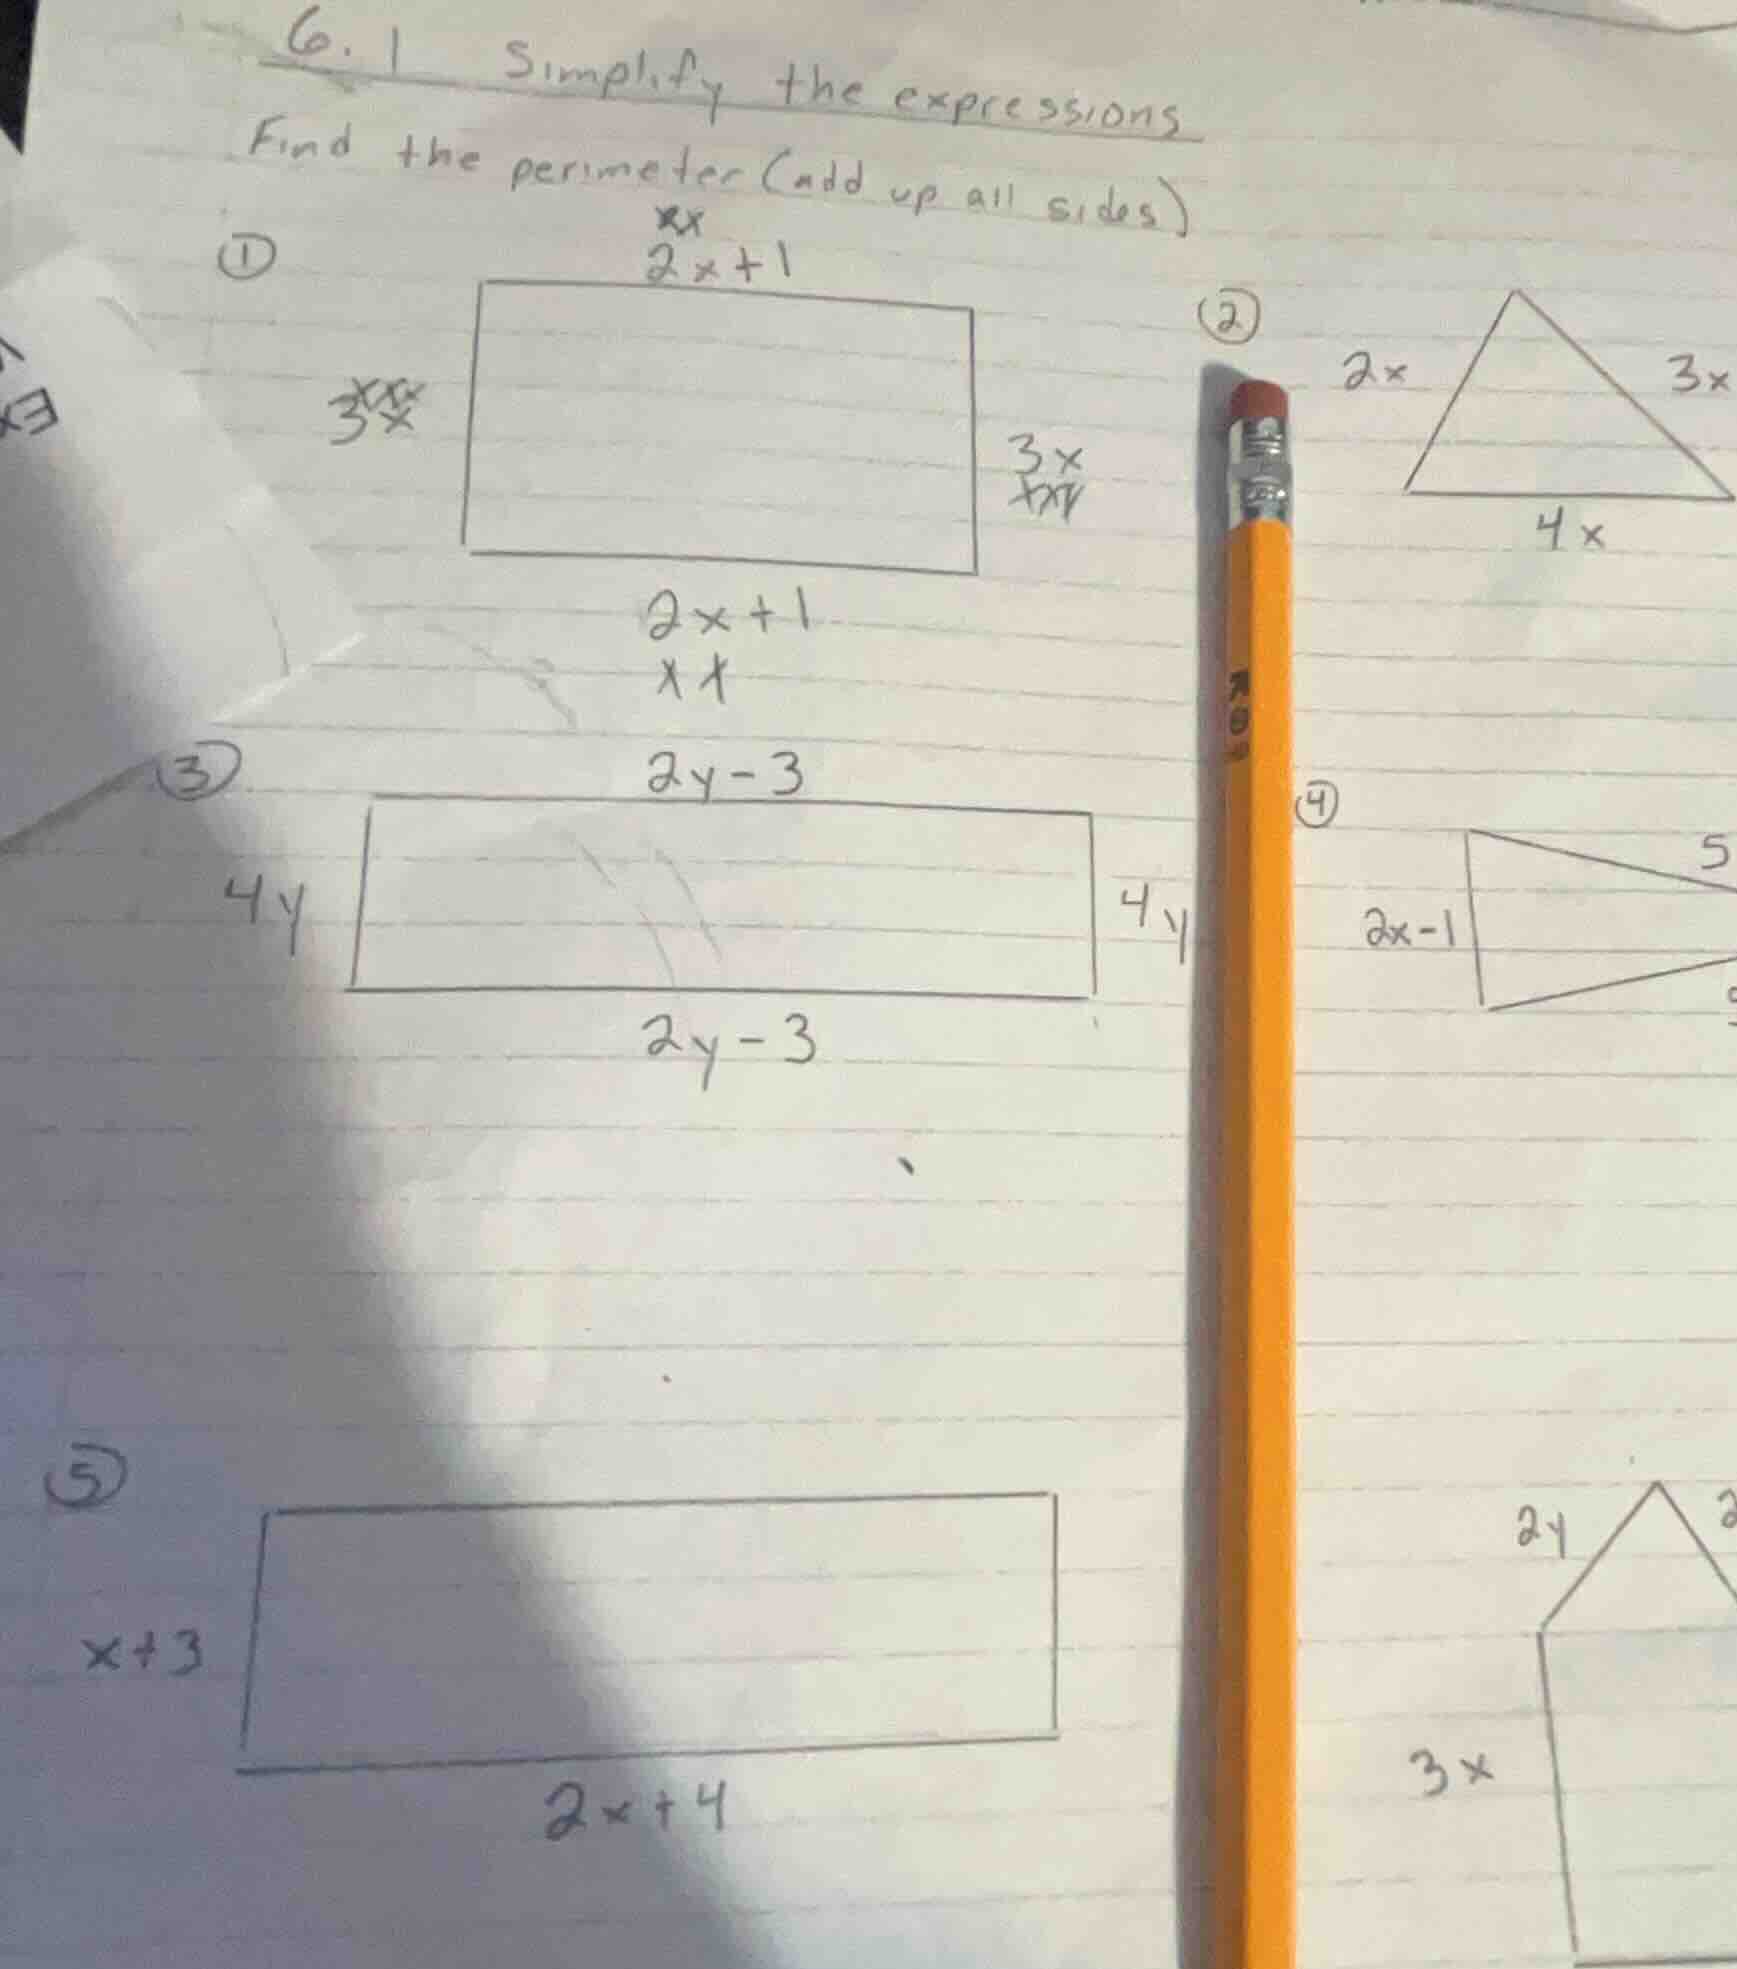 6.1 Simplify the expressions
Find the perimeter (add up all sides)
①
xx
2x+1
3x
xxx
3x
xxx
2x+1
xx
②
2x
3x
4x
③
2y-3
4y
4y
2y-3
④
5
2x-1
⑤
x+3
2x+4
2y
2
3x